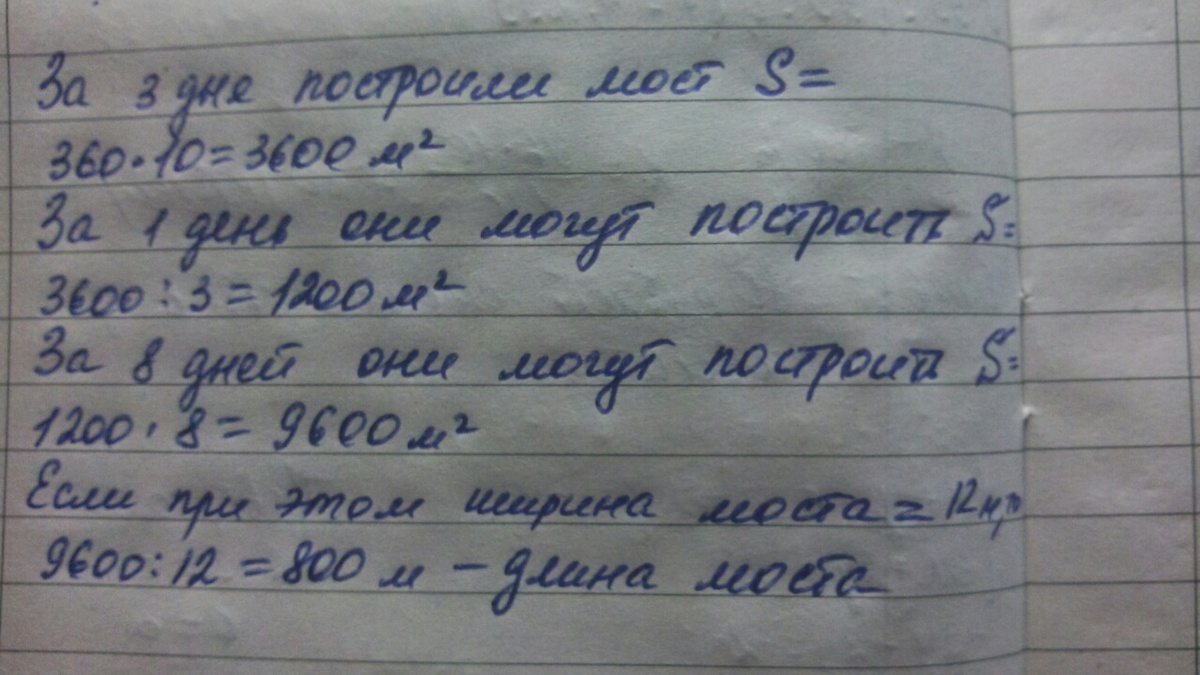 За 3 дня построили мост S=
360·10=3600 м²
За 1 день они могут построить S=
3600:3=1200 м²
За 8 дней они могут построить S=
1200·8=9600 м²
Если при этом ширина моста = 12 м,то
9600:12=800 м – длина моста